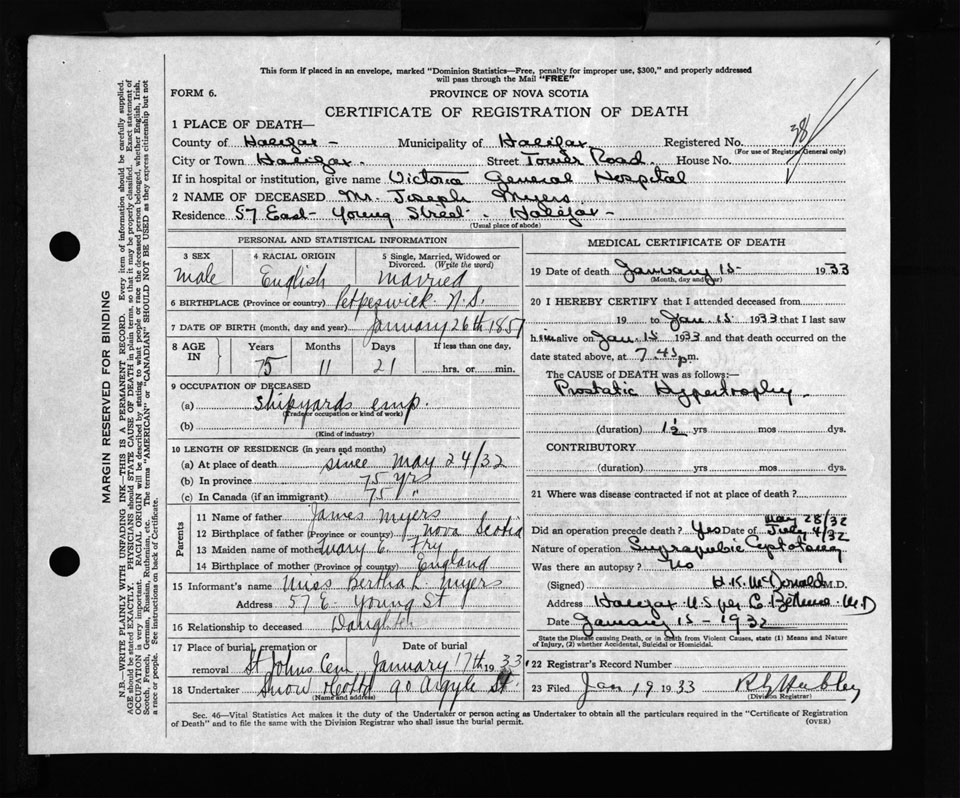 This form if placed in an envelope, marked "Dominion Statistics—Free, penalty for improper use, $300," and properly addressed
will pass through the Mail "FREE"
FORM 6.
PROVINCE OF NOVA SCOTIA
CERTIFICATE OF REGISTRATION OF DEATH
1 PLACE OF DEATH—
County of Halifax — Municipality of Halifax. Registered No. 38
(For use of Registrar General only)
City or Town Halifax. Street Tower Road. House No.
If in hospital or institution, give name Victoria General Hospital
2 NAME OF DECEASED Mr. Joseph Myers
Residence 57 East Young Street. Halifax —
(Usual place of abode)
PERSONAL AND STATISTICAL INFORMATION
3 SEX
male
4 RACIAL ORIGIN
English
5 Single, Married, Widowed or
Divorced. (Write the word)
Married
6 BIRTHPLACE (Province or country) Petpeswick N.S.
7 DATE OF BIRTH (month, day and year) January 26th 1857
8 AGE IN
Years Months Days If less than one day,
75 11 21 hrs. or min.
9 OCCUPATION OF DECEASED
(a) Shipyards emp.
(Trade or occupation or kind of work)
(b)
(Kind of industry)
10 LENGTH OF RESIDENCE (in years and months)
(a) At place of death since May 24/32
(b) In province 75 yrs
(c) In Canada (if an immigrant) 75 "
Parents
11 Name of father James Myers
12 Birthplace of father (Province or country) Nova Scotia
13 Maiden name of mother Mary E. Fry
14 Birthplace of mother (Province or country) England
15 Informant's name Miss Bertha L. Myers
Address 57 E. Young St
16 Relationship to deceased Daughter
17 Place of burial, cremation or Date of burial
removal St Johns Cem January 17th 1933
18 Undertaker Snow & Co Ltd 90 Argyle St.
(Name and address)
MEDICAL CERTIFICATE OF DEATH
19 Date of death January 15 1933
(Month, day and year)
20 I HEREBY CERTIFY that I attended deceased from
19 to Jan. 15 1933 that I last saw
him alive on Jan. 15 1933 and that death occurred on the
date stated above, at 7.45 p.m.
The CAUSE OF DEATH was as follows:—
Prostatic Hypertrophy.
(duration) 1½ yrs mos dys.
CONTRIBUTORY
(duration) yrs mos dys.
21 Where was disease contracted if not at place of death?
May 28/32
Did an operation precede death? Yes Date of July 4/32
Nature of operation Suprapubic Cystotomy
Was there an autopsy? No
(Signed) H.K. McDonald M.D.
Address Halifax N.S per C. Bethune M.D
Date January 15 — 1932
State the Disease causing Death, or in death from Violent Causes, state (1) Means and Nature
of Injury, (2) whether Accidental, Suicidal or Homicidal.
22 Registrar's Record Number
23 Filed Jan 19 1933
(Division Registrar)
Sec. 46—Vital Statistics Act makes it the duty of the Undertaker or person acting as Undertaker to obtain all the particulars required in the "Certificate of Registration
of Death" and to file the same with the Division Registrar who shall issue the burial permit.
(OVER)
MARGIN RESERVED FOR BINDING
N.B.—WRITE PLAINLY WITH UNFADING INK—THIS IS A PERMANENT RECORD. Every item of information should be carefully supplied.
AGE should be stated EXACTLY. PHYSICIANS should STATE CAUSE OF DEATH in plain terms, so that it may be properly classified. Exact statement of
OCCUPATION is very important. RACIAL ORIGIN will be described by stating to what people or race the deceased person belonged, whether English, Irish,
Scotch, French, German, Russian, Ruthenian, etc. The terms "AMERICAN" or "CANADIAN" SHOULD NOT BE USED as they express citizenship but not
a race or people. See instructions on back of Certificate.